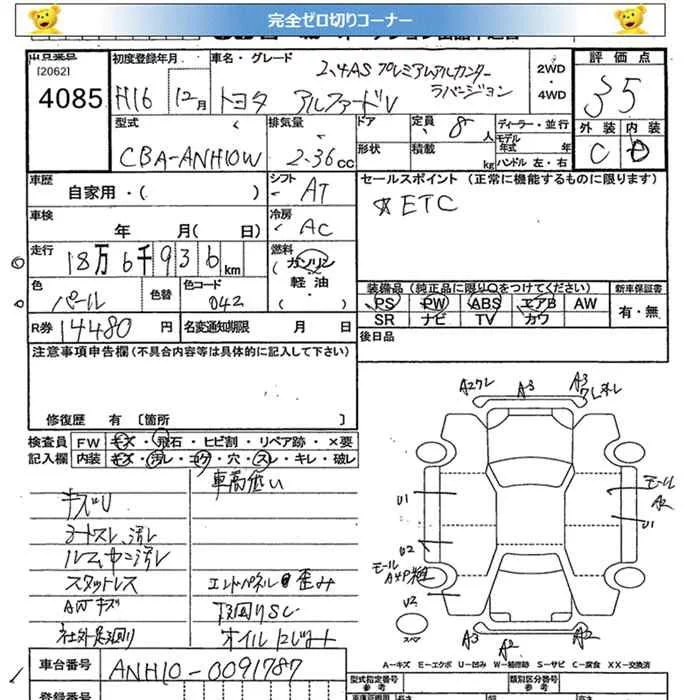 完全ゼロ切りコーナー
出品票皿
[2062]
4085
初度登録年月
H16 12月
車名・グレード
2.4AS プレミアムアルカンターラバージョン
トヨタ アルファードV
2WD・4WD
評価点
3 5
外装 内装
C
型式
CBA-ANH10W
排気量
2.36 cc
ドア
形状
定員 8 人
積載 kg
ディーラー・並行
モデル年式 年
ハンドル 左・右
車歴
自家用・( )
シフト
AT
セールスポイント (正常に機能するものに限ります)
☆ETC
車検
年 月( 日)
冷房
AC
走行
18万6千936 km
燃料
ガソリン
軽油
( ・ )
色
パール
色替
色コード
042
装備品 (純正品に限り○をつけてください)
新車保証書
PS PW ABS エアB AW
SR ナビ TV カワ
有・無
R券 14480 円
名変通知期限 月 日
後日品
注意事項申告欄 (不具合内容等は具体的に記入して下さい)
修復歴 有 [箇所 ]
検査員 FW キズ・飛石・ヒビ割・リペア跡・×要
記入欄 内装 キズ・汚レ・コゲ・穴・スレ・キレ・破レ
車高低い
キズU
シートスレ、汚レ
ルーム中ニ汚レ
スタットレス
AWキズ
社外足廻り
エンドパネル歪み
下廻りSし
オイルにじみ
A2クレ
A3
A3
クレキレ
U1
モール
A2
U1
U2
モール
U2
スペア
A3
A2
A3
A-キズ E-エクボ U-凹み W-補修跡 S-サビ C-腐食 XX-交換済
車台番号
ANH10-0091787
型式指定番号
参考
類別区分番号
参考
登録番号